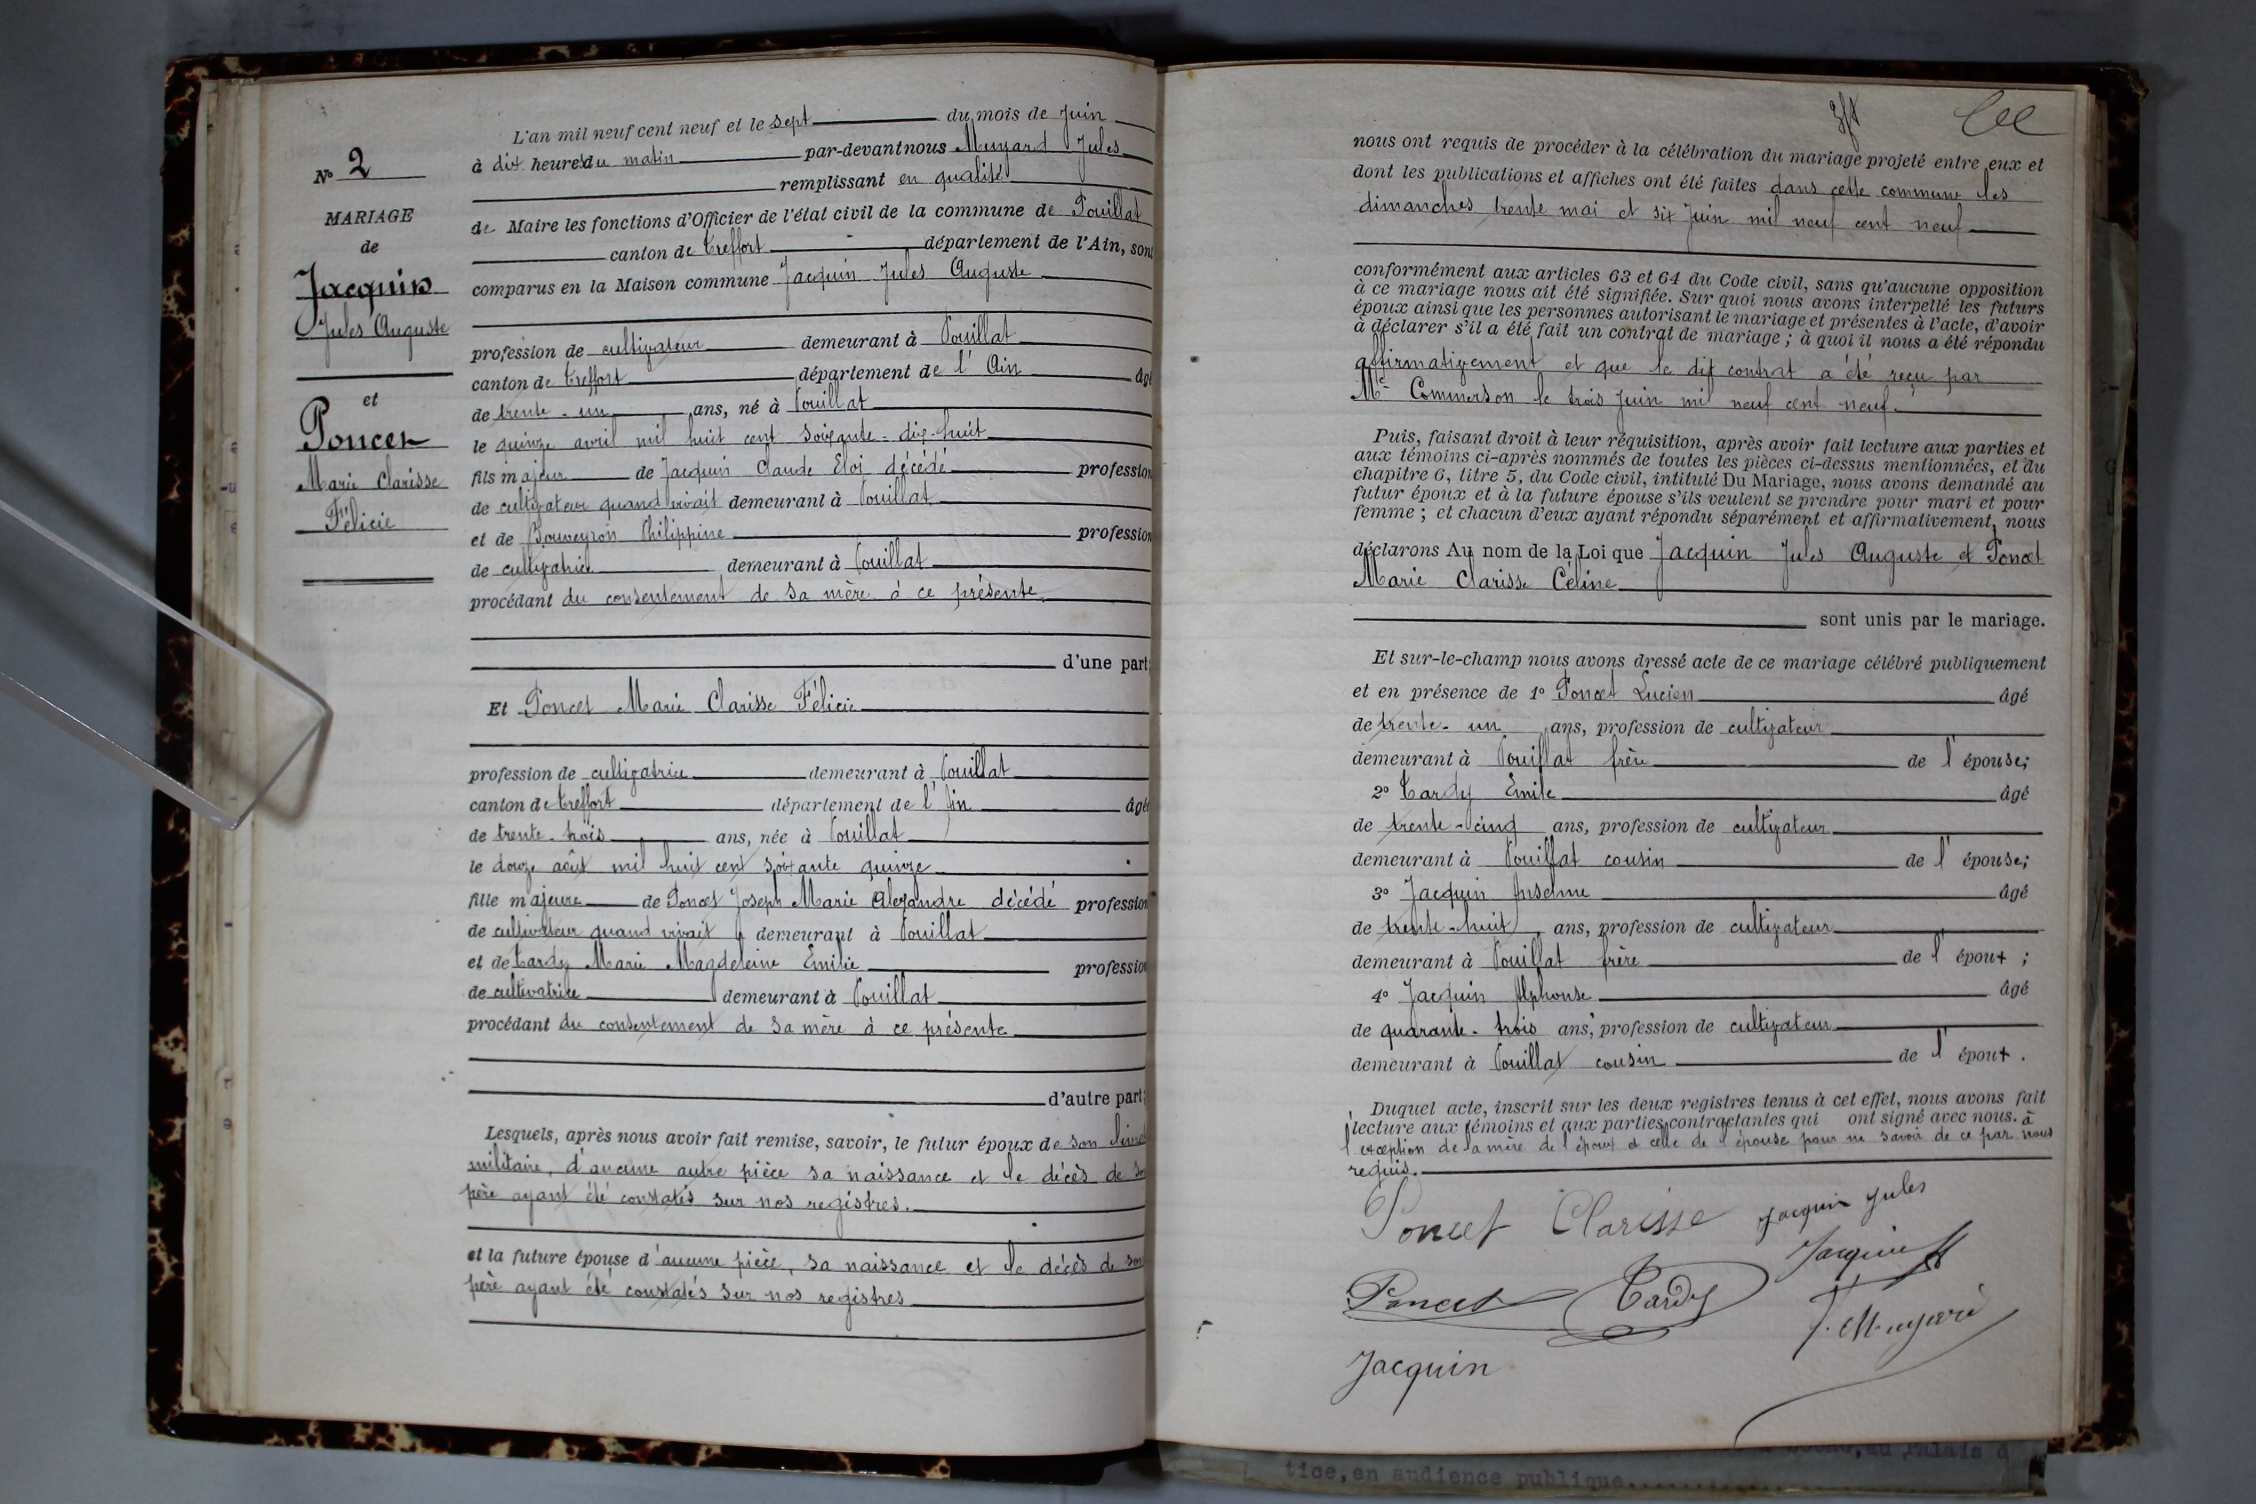 L'an mil neuf cent neuf et le sept du mois de Juin
à dix heures du matin par-devant nous Muyard Jules
remplissant en qualité
de Maire les fonctions d'Officier de l'état civil de la commune de Pouillat
canton de Treffort département de l'Ain, sont
comparus en la Maison commune Jacquin Jules Auguste
profession de cultivateur demeurant à Pouillat
canton de Treffort département de l'Ain âgé
de trente-un ans, né à Pouillat
le quinze avril mil huit cent soixante-dix-huit
fils majeur de Jacquin Claude Eloi décédé profession
de cultivateur quand vivait demeurant à Pouillat
et de Bouveyron Philippine profession
de cultivatrice demeurant à Pouillat
procédant du consentement de sa mère à ce présente
d'une part;
Et Poncet Marie Clarisse Félicie
profession de cultivatrice demeurant à Pouillat
canton de Treffort département de l'Ain âgée
de trente-trois ans, née à Pouillat
le douze août mil huit cent soixante quinze
fille majeure de Poncet Joseph Marie Alexandre décédé profession
de cultivateur quand vivait demeurant à Pouillat
et de Tardy Marie Magdeleine Emilie profession
de cultivatrice demeurant à Pouillat
procédant du consentement de sa mère à ce présente
d'autre part;
Lesquels, après nous avoir fait remise, savoir, le futur époux de son livret
militaire, d'aucune autre pièce sa naissance et le décès de son
père ayant été constatés sur nos registres.
et la future épouse d'aucune pièce, sa naissance et le décès de son
père ayant été constatés sur nos registres
No 2
MARIAGE
de
Jacquin
Jules Auguste
et
Poncet
Marie Clarisse
Félicie
nous ont requis de procéder à la célébration du mariage projeté entre eux et
dont les publications et affiches ont été faites dans cette commune les
dimanches trente mai et six Juin mil neuf cent neuf
conformément aux articles 63 et 64 du Code civil, sans qu'aucune opposition
à ce mariage nous ait été signifiée. Sur quoi nous avons interpellé les futurs
époux ainsi que les personnes autorisant le mariage et présentes à l'acte, d'avoir
à déclarer s'il a été fait un contrat de mariage; à quoi il nous a été répondu
affirmativement et que le dit contrat a été reçu par
Me Commerson le trois Juin mil neuf cent neuf.
Puis, faisant droit à leur réquisition, après avoir fait lecture aux parties et
aux témoins ci-après nommés de toutes les pièces ci-dessus mentionnées, et du
chapitre 6, titre 5, du Code civil, intitulé Du Mariage, nous avons demandé au
futur époux et à la future épouse s'ils veulent se prendre pour mari et pour
femme; et chacun d'eux ayant répondu séparément et affirmativement, nous
déclarons Au nom de la Loi que Jacquin Jules Auguste et Poncet
Marie Clarisse Céline
sont unis par le mariage.
Et sur-le-champ nous avons dressé acte de ce mariage célébré publiquement
et en présence de 1° Poncet Lucien âgé
de trente-un ans, profession de cultivateur
demeurant à Pouillat frère de l'épouse;
2° Tardy Emile âgé
de trente-cinq ans, profession de cultivateur
demeurant à Pouillat cousin de l'épouse;
3° Jacquin Anselme âgé
de trente-huit ans, profession de cultivateur
demeurant à Pouillat frère de l'époux;
4° Jacquin Alphonse âgé
de quarante-trois ans, profession de cultivateur
demeurant à Pouillat cousin de l'époux.
Duquel acte, inscrit sur les deux registres tenus à cet effet, nous avons fait
lecture aux témoins et aux parties contractantes qui ont signé avec nous. à
l'exception de la mère de l'époux et celle de l'épouse pour ne savoir de ce par nous
requis.
Poncet Clarisse Jacquin Jules
Jacquin A
Poncet Tardy
J. Muyard
Jacquin
au Palais d
tice, en audience publique